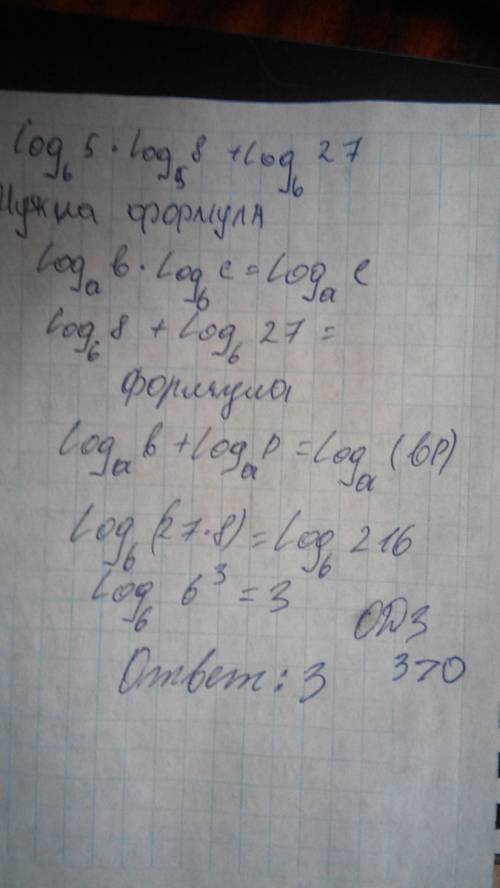 log₆ 5 · log₅ 8 + log₆ 27
Нужна формула
logₐ в · log_в c = logₐ c
log₆ 8 + log₆ 27 =
формула
logₐ b + logₐ p = logₐ (bp)
log₆ (27·8) = log₆ 216
log₆ 6³ = 3
ОДЗ
3>0
Ответ: 3